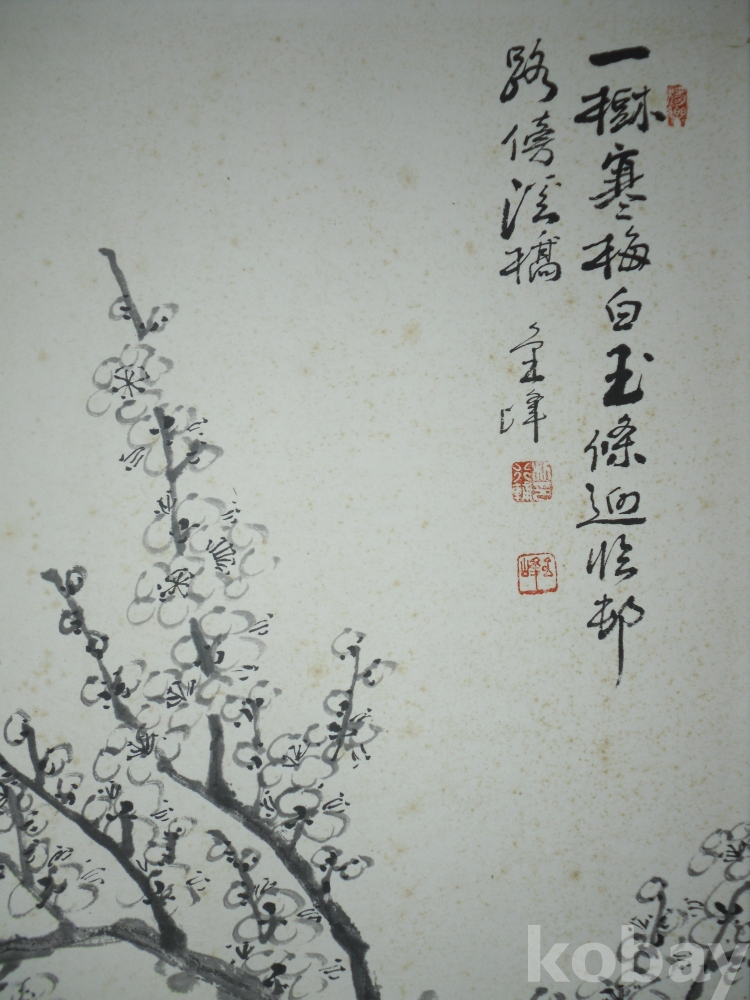 一樹寒梅白玉條迥臨邨
路傍溪橋
金峰
kobay